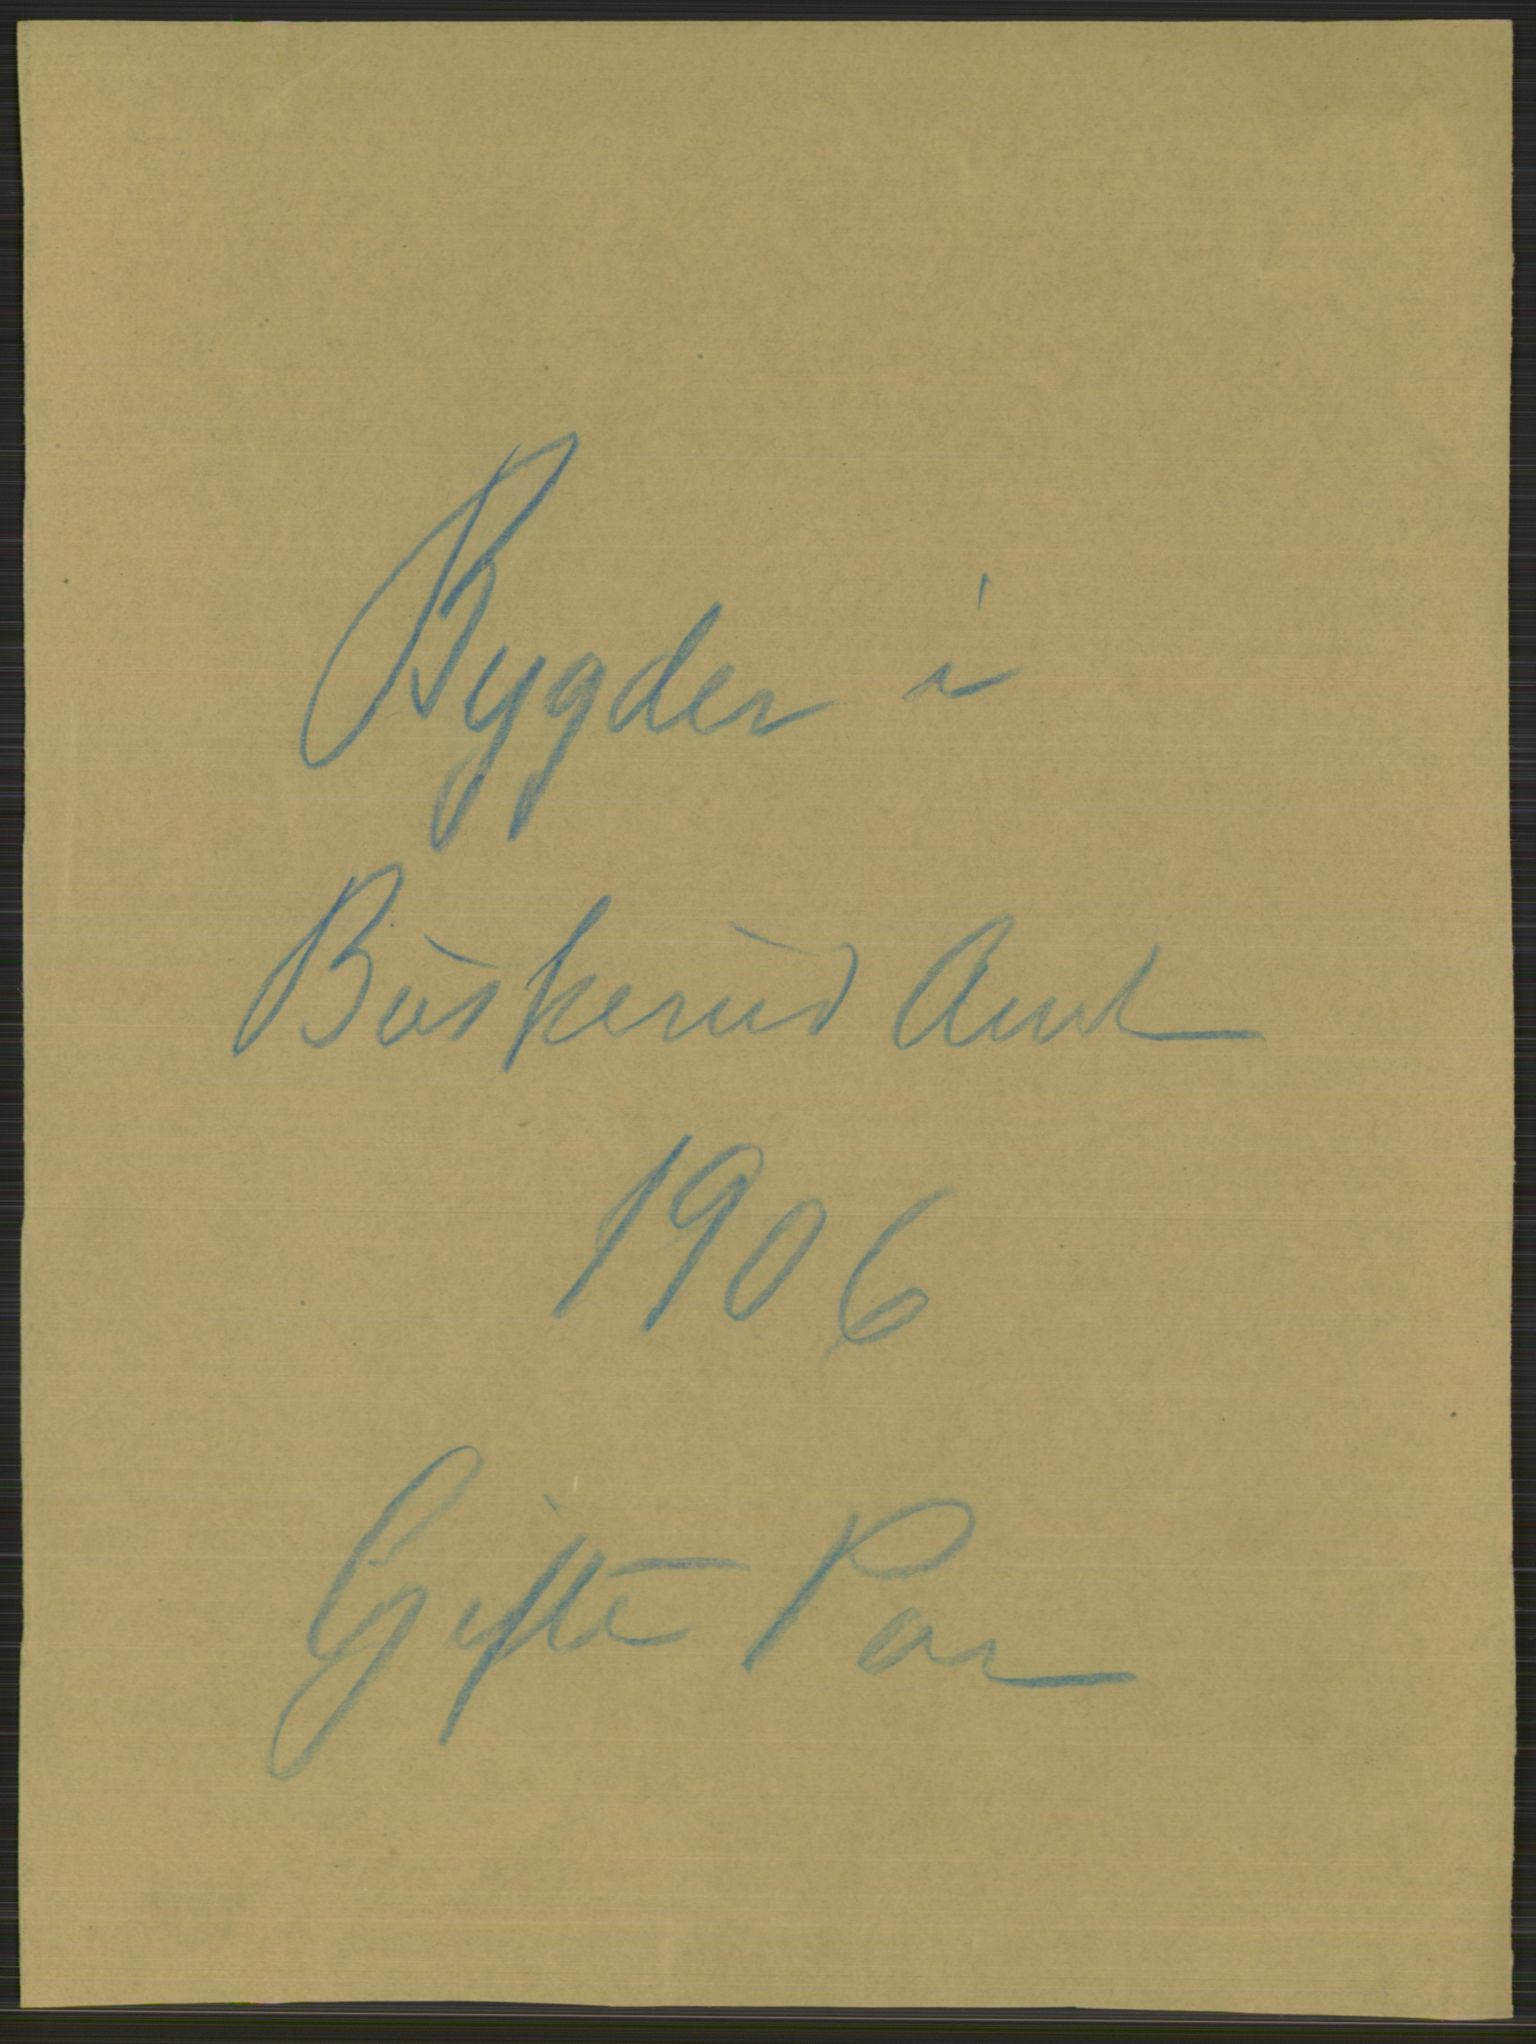 Bygder i
Buskerud Amt
1906
Gifte Par